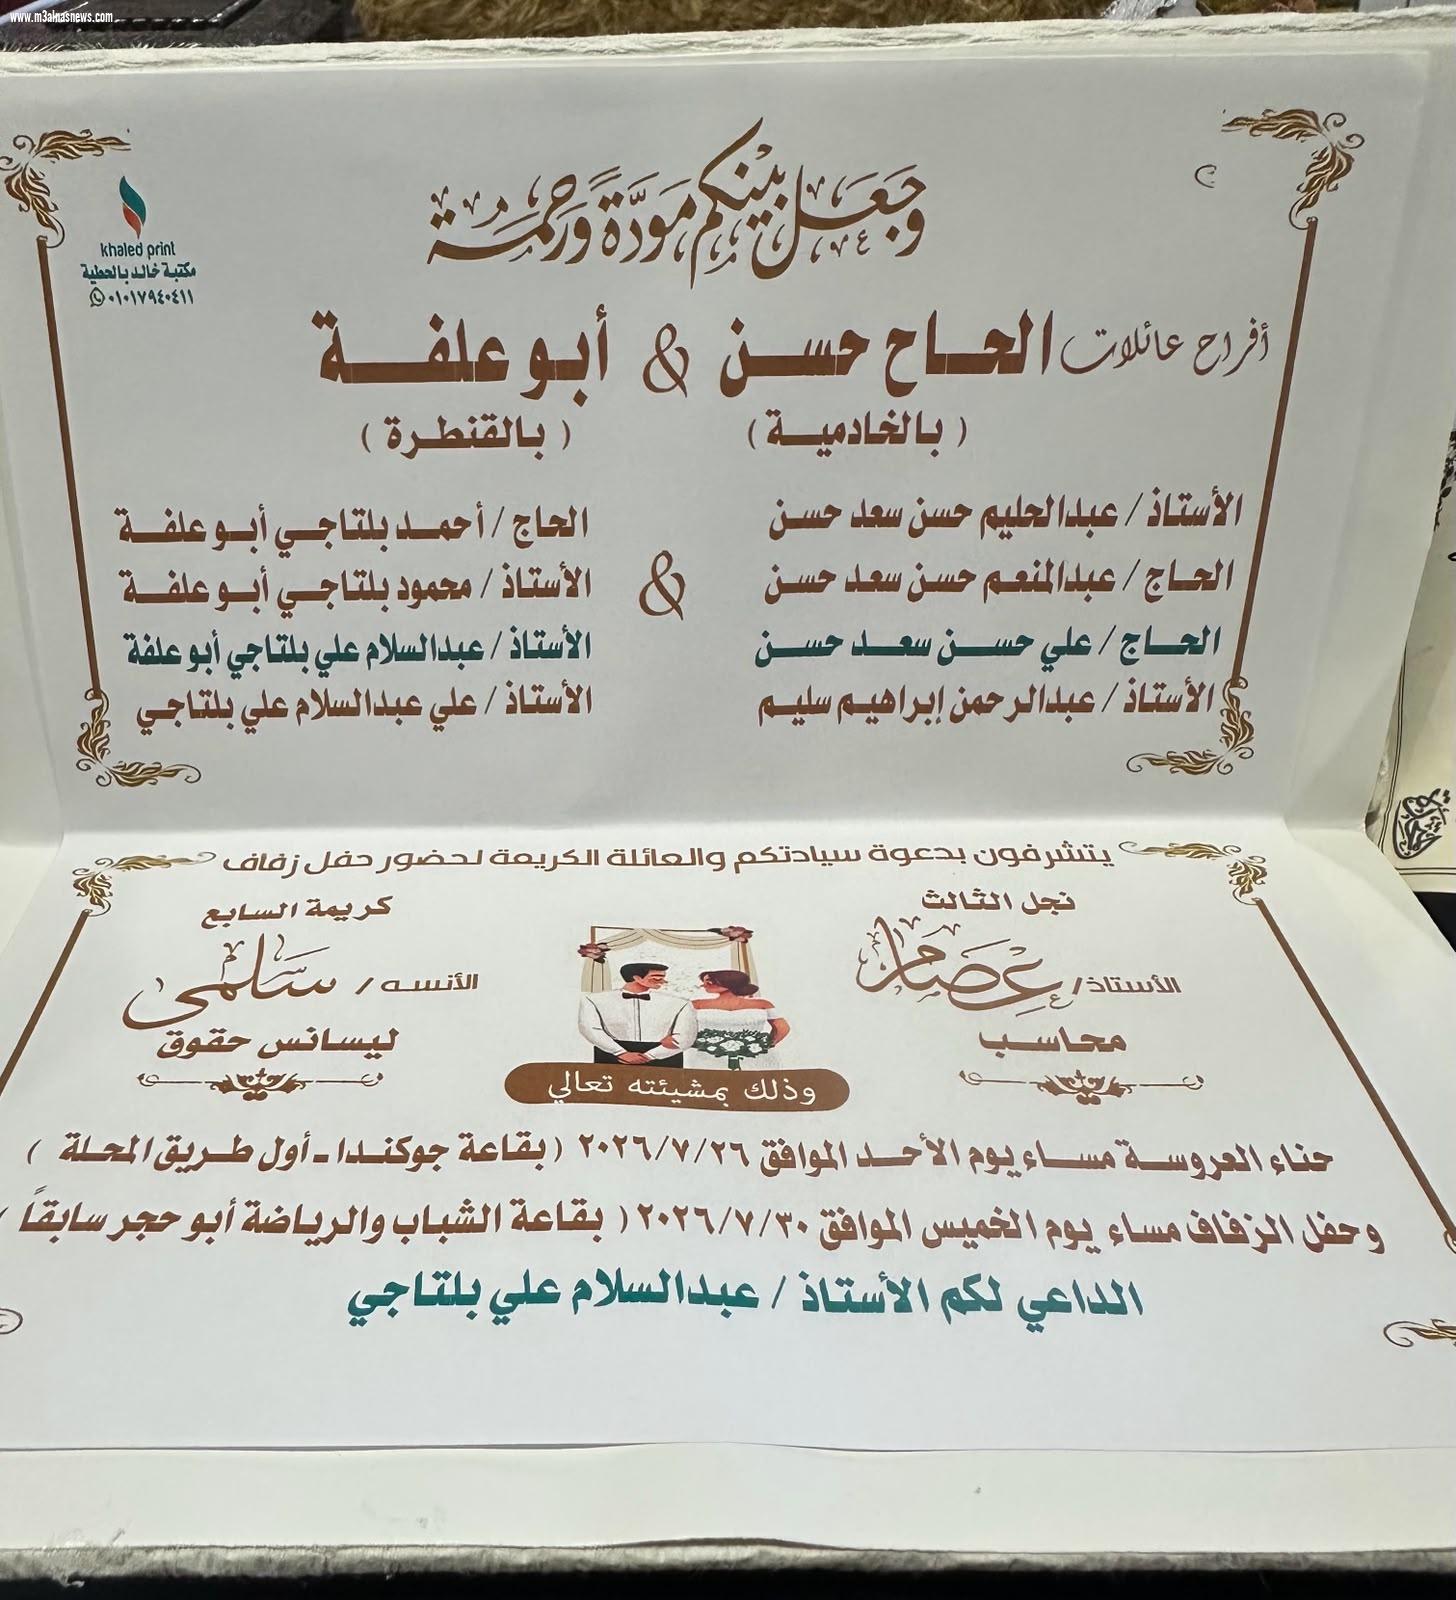 www.m3alnasnews.com
وجعل بينكم مودة ورحمة
khaled print
مكتبة خالد بالحطية
٠١٠١٧٩٤٠٤١١
أفراح عائلات الحاج حسن & أبو علفة
( بالخادمية ) ( بالقنطرة )
الأستاذ / عبدالحليم حسن سعد حسن
الحاج / عبدالمنعم حسن سعد حسن
الحاج / علي حسن سعد حسن
الأستاذ / عبدالرحمن إبراهيم سليم
&
الحاج / أحمد بلتاجي أبو علفة
الأستاذ / محمود بلتاجي أبو علفة
الأستاذ / عبدالسلام علي بلتاجي أبو علفة
الأستاذ / علي عبدالسلام علي بلتاجي
يتشرفون بدعوة سيادتكم والعائلة الكريمة لحضور حفل زفاف
نجل الثالث
الأستاذ / عصام
محاسب
كريمة السابع
الأنسه / سلمى
ليسانس حقوق
وذلك بمشيئته تعالي
حناء العروسة مساء يوم الأحد الموافق ٢٠٢٦/٧/٢٦ ( بقاعة جوكندا - أول طريق المحلة )
وحفل الزفاف مساء يوم الخميس الموافق ٢٠٢٦/٧/٣٠ ( بقاعة الشباب والرياضة أبو حجر سابقاً )
الداعي لكم الأستاذ / عبدالسلام علي بلتاجي